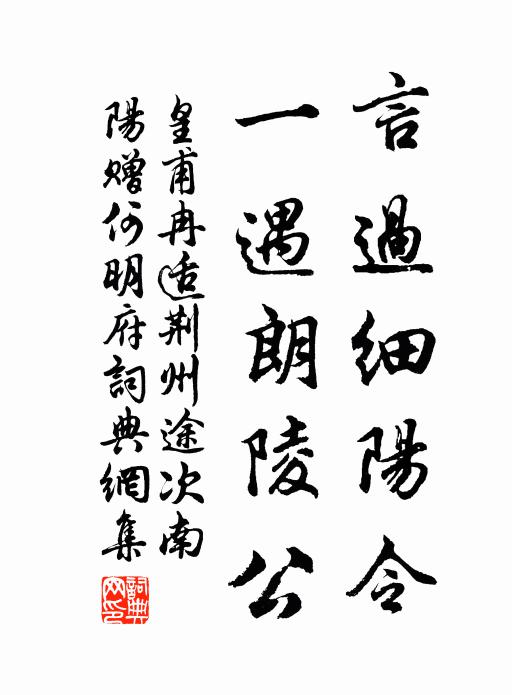 言過細陽令
一遇朗陵公
皇甫冉适荆州途次南
陽贈何明府詞典網集
詞典
网印